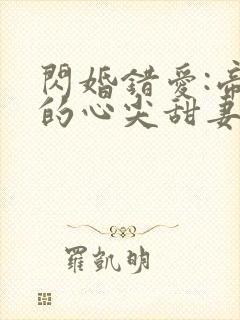 閃婚錯愛:帝
的心尖甜妻
羅凱明